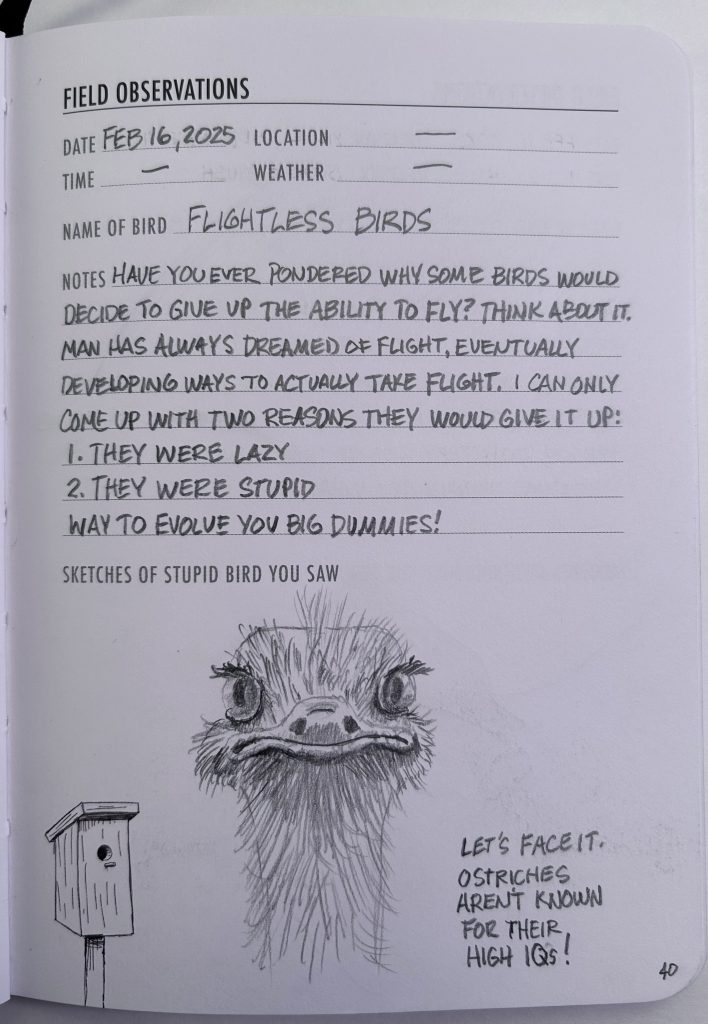 FIELD OBSERVATIONS
DATE FEB 16, 2025 LOCATION —
TIME — WEATHER —
NAME OF BIRD FLIGHTLESS BIRDS
NOTES HAVE YOU EVER PONDERED WHY SOME BIRDS WOULD
DECIDE TO GIVE UP THE ABILITY TO FLY? THINK ABOUT IT.
MAN HAS ALWAYS DREAMED OF FLIGHT, EVENTUALLY
DEVELOPING WAYS TO ACTUALLY TAKE FLIGHT. I CAN ONLY
COME UP WITH TWO REASONS THEY WOULD GIVE IT UP:
1. THEY WERE LAZY
2. THEY WERE STUPID
WAY TO EVOLVE YOU BIG DUMMIES!
SKETCHES OF STUPID BIRD YOU SAW
LET'S FACE IT.
OSTRICHES
AREN'T KNOWN
FOR THEIR
HIGH IQs!
40